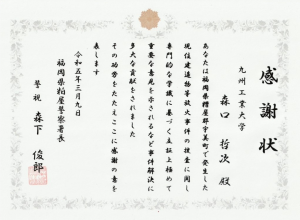 感謝状
九州工業大学
森口 哲次 殿
あなたは福岡県糟屋郡宇美町で発生した
現住建造物等放火事件の捜査に関し
専門的な学識に基づく立証上極めて
重要な意見を示されるなど事件解決に
多大な貢献をされました
その功労をたたえここに感謝の意を
表します
令和五年三月九日
福岡県粕屋警察署長
警視 森下 俊郎